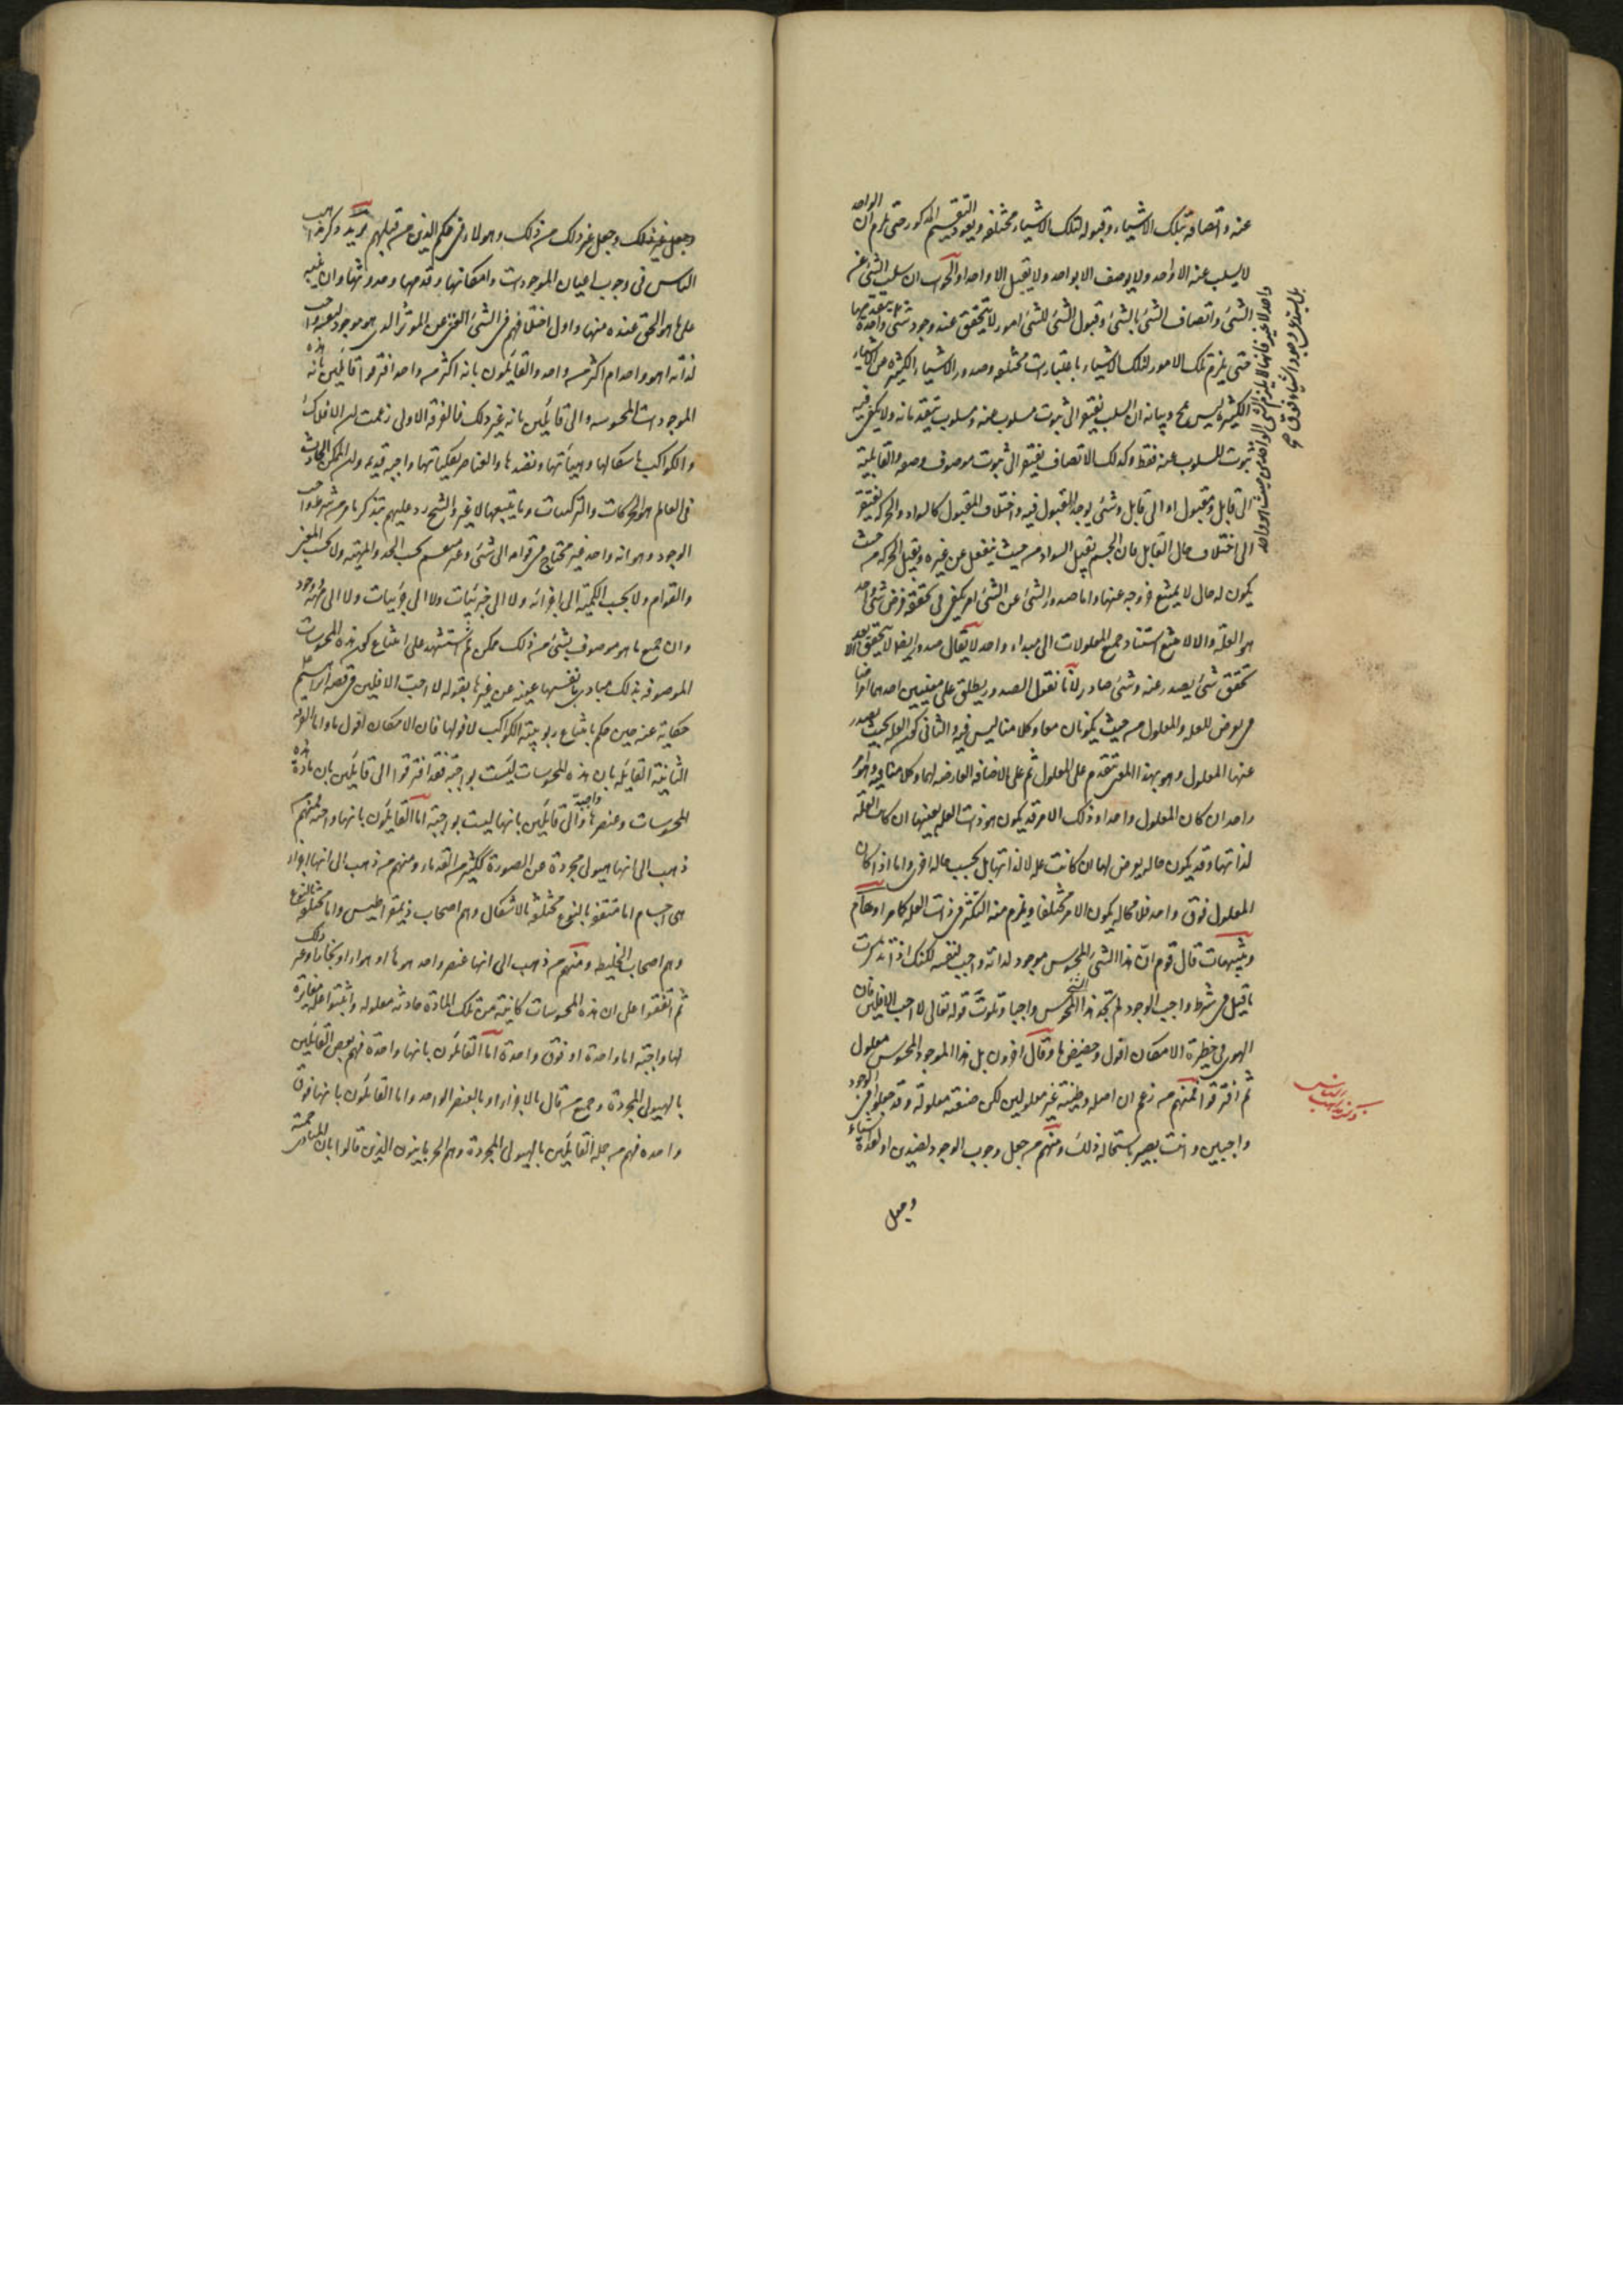 عنه واتصافه بتلك الاشياء وقبوله لتلك الاشياء مختلفه ويعود التقسيم المذكور حتى يلزم ان الواحد
لا يسلب عنه الا واحد ولا يوصف الا بواحد ولا يقبل الا واحدا والجواب ان سلب الشئ عن
الشئ واتصاف الشئ بالشئ وقبول الشئ للشئ امور لا يتحقق عند وجود شئ واحد
حتى يلزم تلك الامور لتلك الاشياء باعتبارات مختلفه وصدور الاشياء الكثيره عن الاشياء
الكثيره ليس بمح وبيانه ان السلب يفتقر الى ثبوت مسلوب عنه ومسلوب يتقدمانه ولا يكفى فيه
ثبوت المسلوب عنه فقط وكذلك الاتصاف يفتقر الى ثبوت موصوف وصفه والقابلية
الى قابل ومقبول او الى قابل وشئ يوجد المقبول فيه واختلاف المقبول كالسواد والحركه يفتقر
الى اختلاف حال القابل فان الجسم يقبل السواد من حيث ينفعل عن غيره ويقبل الحركه من حيث
يكون له حال لا يمتنع خروجه عنها واما صدور الشئ عن الشئ امر يكفى فى تحققه فرض شئ واحد
هو العلة والا لامتنع استناد جميع المعلولات الى مبداء واحد لا يقال صدور ايضا لا يتحقق الا بعد
تحقق شئ يصدر عنه وشئ صادر لانا نقول الصدور يطلق على معنيين احدهما امر اضافى
يعرض للعلة والمعلول من حيث يكونان معا وكلامنا ليس فيه والثانى كون العلة بحيث يصدر
عنها المعلول وهو بهذا المعنى متقدم على المعلول ثم على الاضافة العارضه لهما وكلامنا فيه وهو امر
واحد ان كان المعلول واحدا وذلك الامر قد يكون هو ذات العلة بعينها ان كانت العلة
لذاتها وقد يكون حاله يعرض لها ان كانت علة لا لذاتها بل بحسب حاله اخرى واما اذا كان
المعلول فوق واحد فلا محاله يكون الامر مختلفا ويلزم منه التكثر فى ذات العلة كما مر اوهام
وتنبيهات قال قوم ان هذا الشئ المحسوس موجود لذاته واجب لنفسه لكنك اذا تذكرت
ما قيل فى شرط واجب الوجود لم تجد هذا المحسوس واجبا وتلوت قوله تعالى لا احب الافلين فان
الهوى فى حظيرة الامكان افول وحضيض ما وقال اخرون بل هذا الموجود المحسوس معلول
ثم افترقوا فمنهم من زعم ان اصله وطينته غير معلولين لكن صنعته معلولة وقد جعلوا فى الوجود
واجبين وانت بصير باستحالة ذلك ومنهم من جعل وجوب الوجود لضدين او لعدة اشياء
وجعل
ذكر مذاهب الناس
وجعل غير ذلك وجعل غير ذلك من ذلك وهولاء فى حكم الذين من قبلهم يريد ذكر مذاهب
الناس فى وجوب اعيان الموجودات وامكانها وقدمها وحدوثها وان ينبه
على ما هو الحق عنده منها واول اختلافهم فى الشئ الغنى عن الموثر الذى هو موجود لنفسه واجب
لذاته اهو واحد ام اكثر من واحد والقايلون بانه اكثر من واحد افترقوا قايلين بانه هذه
الموجودات المحسوسه والى قايلين بانه غير ذلك فالفرقه الاولى زعمت ان الافلاك
والكواكب باشكالها وهيئاتها ونضدها والعناصر بكلياتها واجبة قديمه وان الممكن الحادث
فى العالم هو الحركات والتركيبات وما يتبعها لا غير والشيخ رد عليهم بتذكر ما مر من شرط واجب
الوجود وهو انه واحد غير محتاج فى قوامه الى شئ وغير منقسم بحسب الحد والمهية ولا بحسب المعنى
والقوام ولا بحسب الكمية الى اجزائه ولا الى جزئيات ولا الى مهية ووجود
وان جميع ما هو موصوف بشئ من ذلك ممكن ثم استشهد على امتناع كون هذه المحسوسات
الموصوفه بذلك مبادى بانفسها غير عن غيرها بقوله لا احب الافلين فى قصة ابراهيم
حكاية عنه حين حكم بامتناع ربوبية الكواكب لافولها فان الامكان افول ما واما الفرقه
الثانية القايله بان هذه المحسوسات ليست بواجبة فقد افترقوا الى قايلين بان مادة هذه
المحسوسات وعنصرها واجبة والى قايلين بانها ليست بواجبة اما القايلون بانها واجبة فمنهم
ذهب الى انها هيولى مجردة عن الصورة ككثير من القدماء ومنهم من ذهب الى انها اجزاء
هى اجسام اما متفقه بالنوع مختلفه بالاشكال وهم اصحاب ذيمقراطيس واما مختلفه بالنوع
وهم اصحاب الخليط ومنهم من ذهب الى انها عنصر واحد هو ماء او هواء او بخار او غير ذلك
ثم اتفقوا على ان هذه المحسوسات كاينة من تلك المادة حادثه معلوله واثبتوا علة مغايرة
لها واجبة اما واحدة او فوق واحدة اما القايلون بانها واحدة فهم بعض القايلين
بالهيولى المجردة وجميع من قال بالاجزاء او بالعنصر الواحد واما القايلون بانها فوق
واحدة فهم من جمله القايلين بالهيولى المجردة وهم الحرنانيون الذين قالوا بان المبادى خمسة